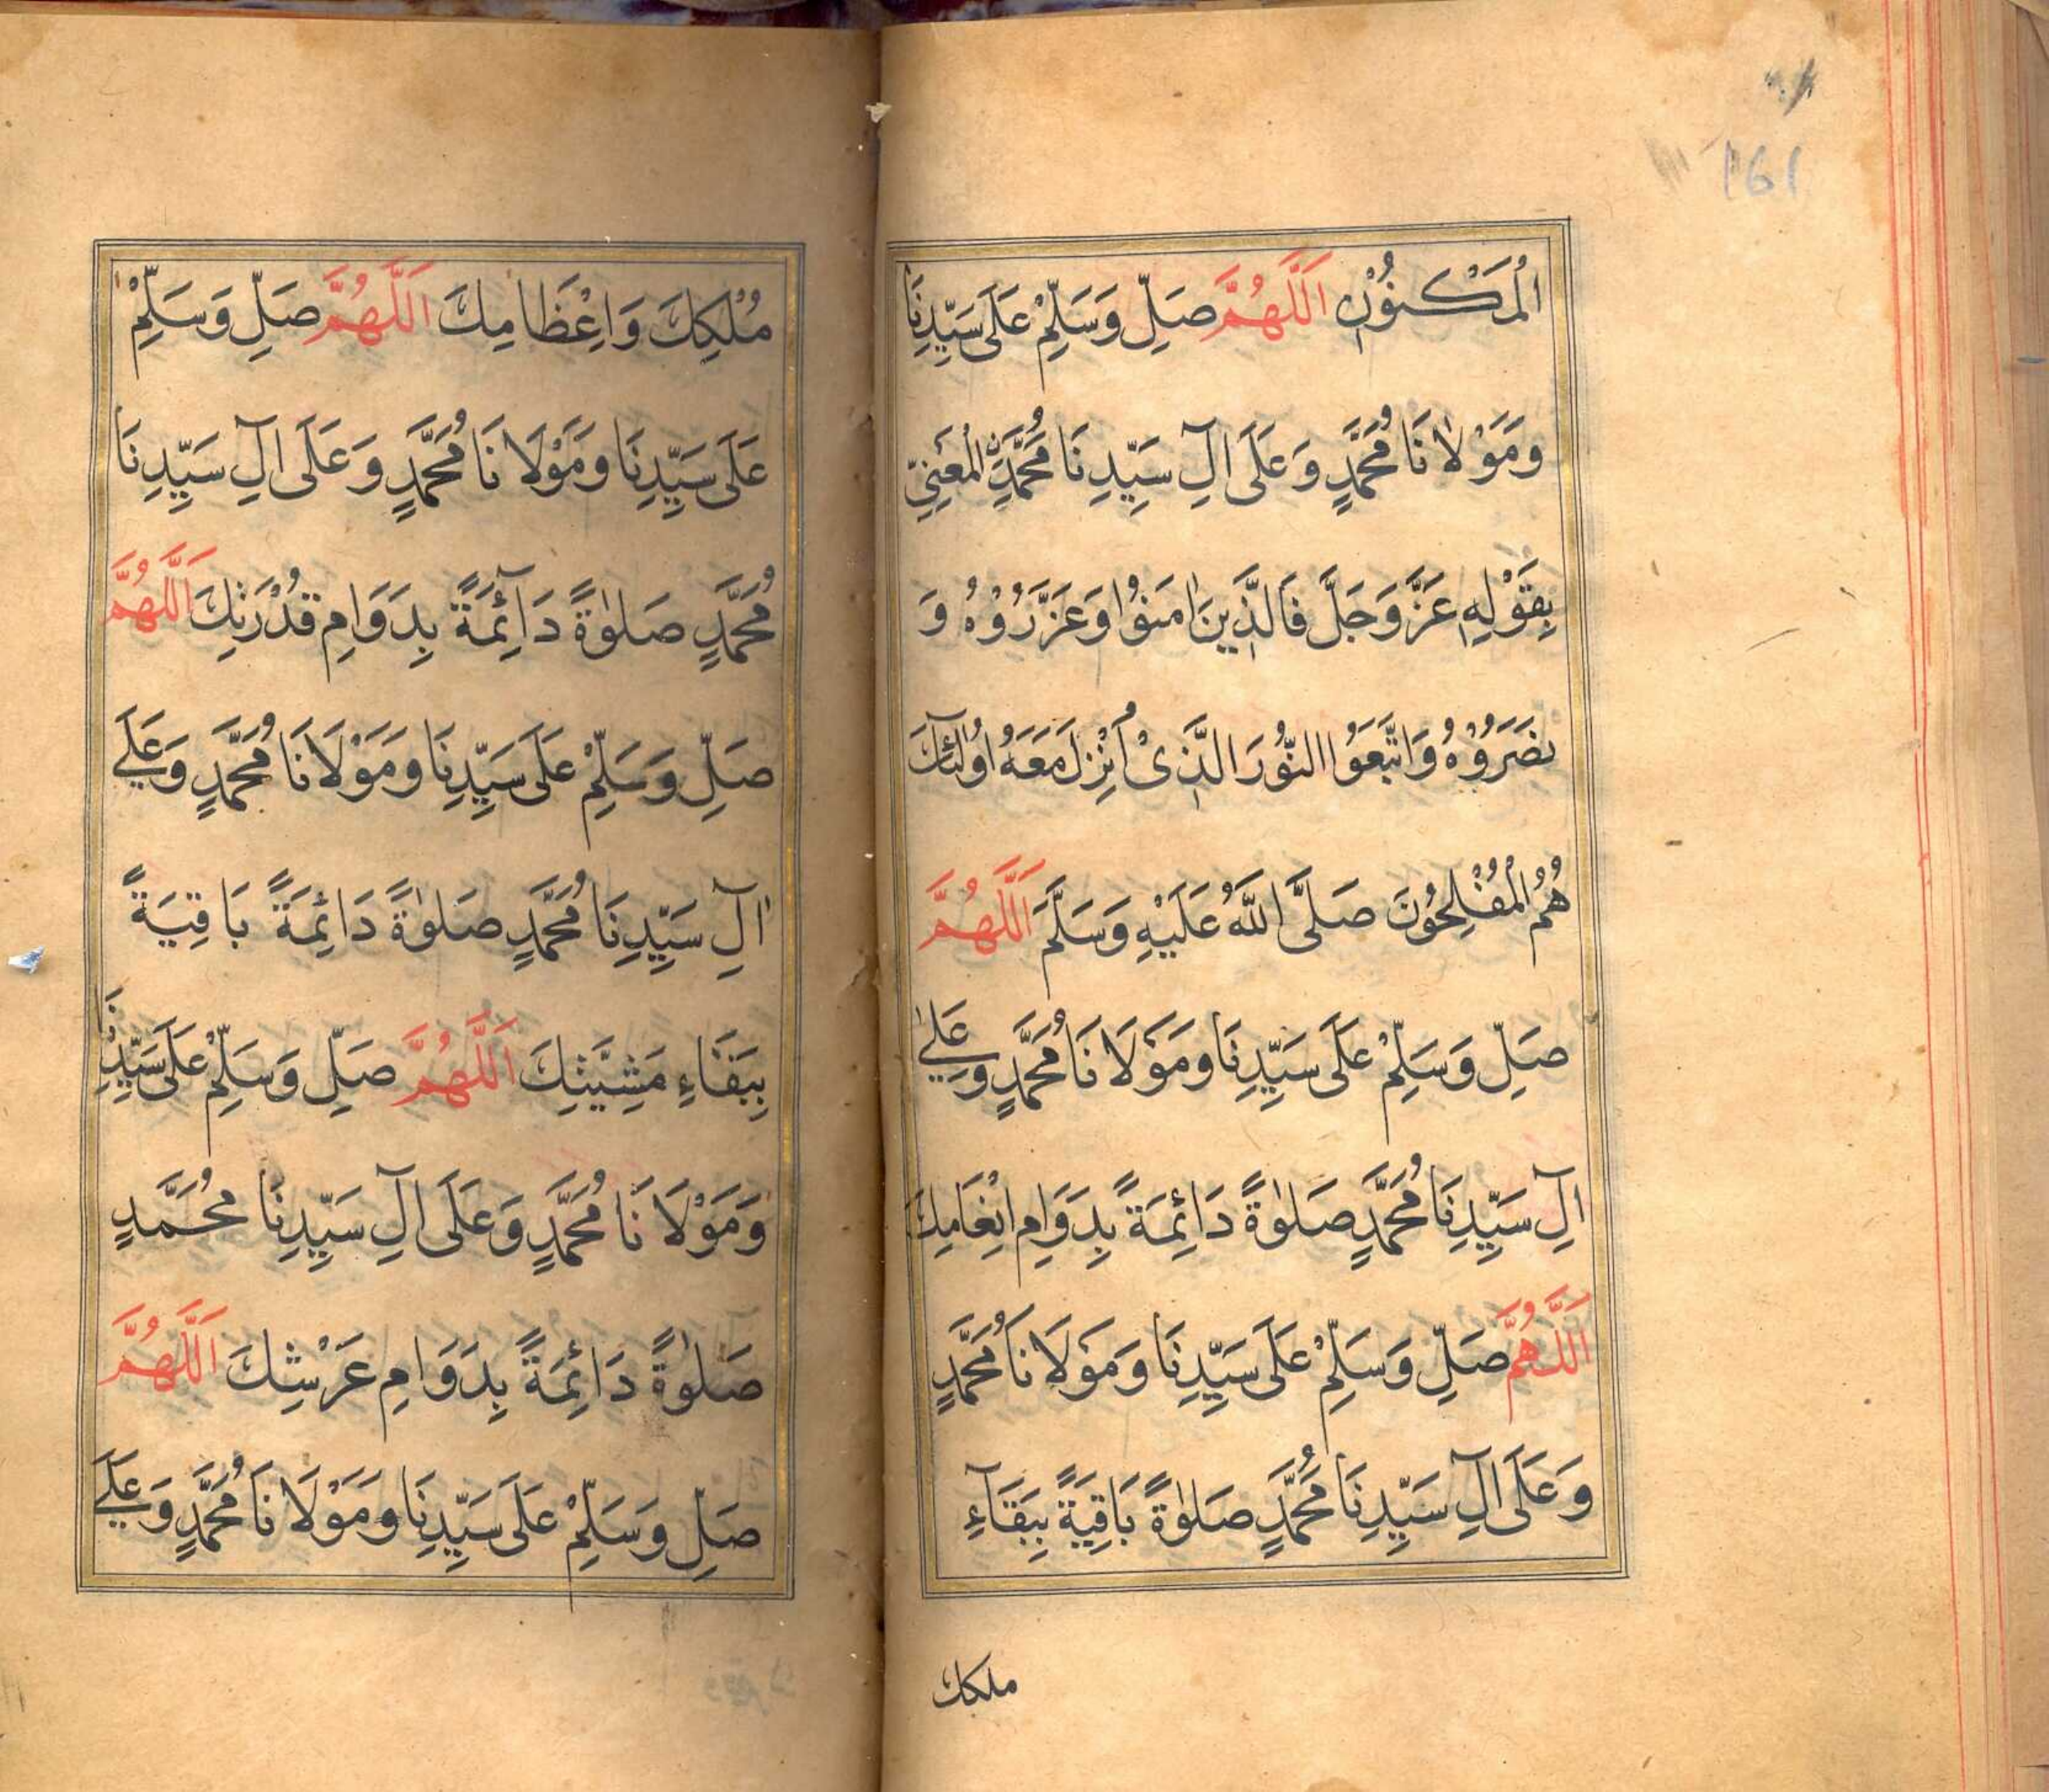 161
الْمَكْنُوْنِ اَللّٰهُمَّ صَلِّ وَسَلِّمْ عَلَى سَيِّدِنَا
وَمَوْلَانَا مُحَمَّدٍ وَعَلَى اٰلِ سَيِّدِنَا مُحَمَّدِنِ الْمَعْنِيِّ
بِقَوْلِهِ عَزَّ وَجَلَّ فَالَّذِينَ اٰمَنُوْا وَعَزَّرُوْهُ وَ
نَصَرُوْهُ وَاتَّبَعُوا النُّوْرَ الَّذِىْ اُنْزِلَ مَعَهُ اُولٰئِكَ
هُمُ الْمُفْلِحُوْنَ صَلَّى اللّٰهُ عَلَيْهِ وَسَلَّمَ اَللّٰهُمَّ
صَلِّ وَسَلِّمْ عَلَى سَيِّدِنَا وَمَوْلَانَا مُحَمَّدٍ وَعَلٰي
اٰلِ سَيِّدِنَا مُحَمَّدٍ صَلٰوةً دَائِمَةً بِدَوَامِ اِنْعَامِكَ
اَللّٰهُمَّ صَلِّ وَسَلِّمْ عَلَى سَيِّدِنَا وَمَوْلَانَا مُحَمَّدٍ
وَعَلَى اٰلِ سَيِّدِنَا مُحَمَّدٍ صَلٰوةً بَاقِيَةً بِبَقَآءِ
ملكك
مُلْكِكَ وَاِعْظَامِكَ اَللّٰهُمَّ صَلِّ وَسَلِّمْ
عَلَى سَيِّدِنَا وَمَوْلَانَا مُحَمَّدٍ وَعَلَى اٰلِ سَيِّدِنَا
مُحَمَّدٍ صَلٰوةً دَآئِمَةً بِدَوَامِ قُدْرَتِكَ اَللّٰهُمَّ
صَلِّ وَسَلِّمْ عَلَى سَيِّدِنَا وَمَوْلَانَا مُحَمَّدٍ وَعَلَي
اٰلِ سَيِّدِنَا مُحَمَّدٍ صَلٰوةً دَائِمَةً بَاقِيَةً
بِبَقَاءِ مَشِيَّتِكَ اَللّٰهُمَّ صَلِّ وَسَلِّمْ عَلَى سَيِّدِنَا
وَمَوْلَانَا مُحَمَّدٍ وَعَلَى اٰلِ سَيِّدِنَا مُحَمَّدٍ
صَلٰوةً دَائِمَةً بِدَوَامِ عَرْشِكَ اَللّٰهُمَّ
صَلِّ وَسَلِّمْ عَلَى سَيِّدِنَا وَمَوْلَانَا مُحَمَّدٍ وَعَلَي